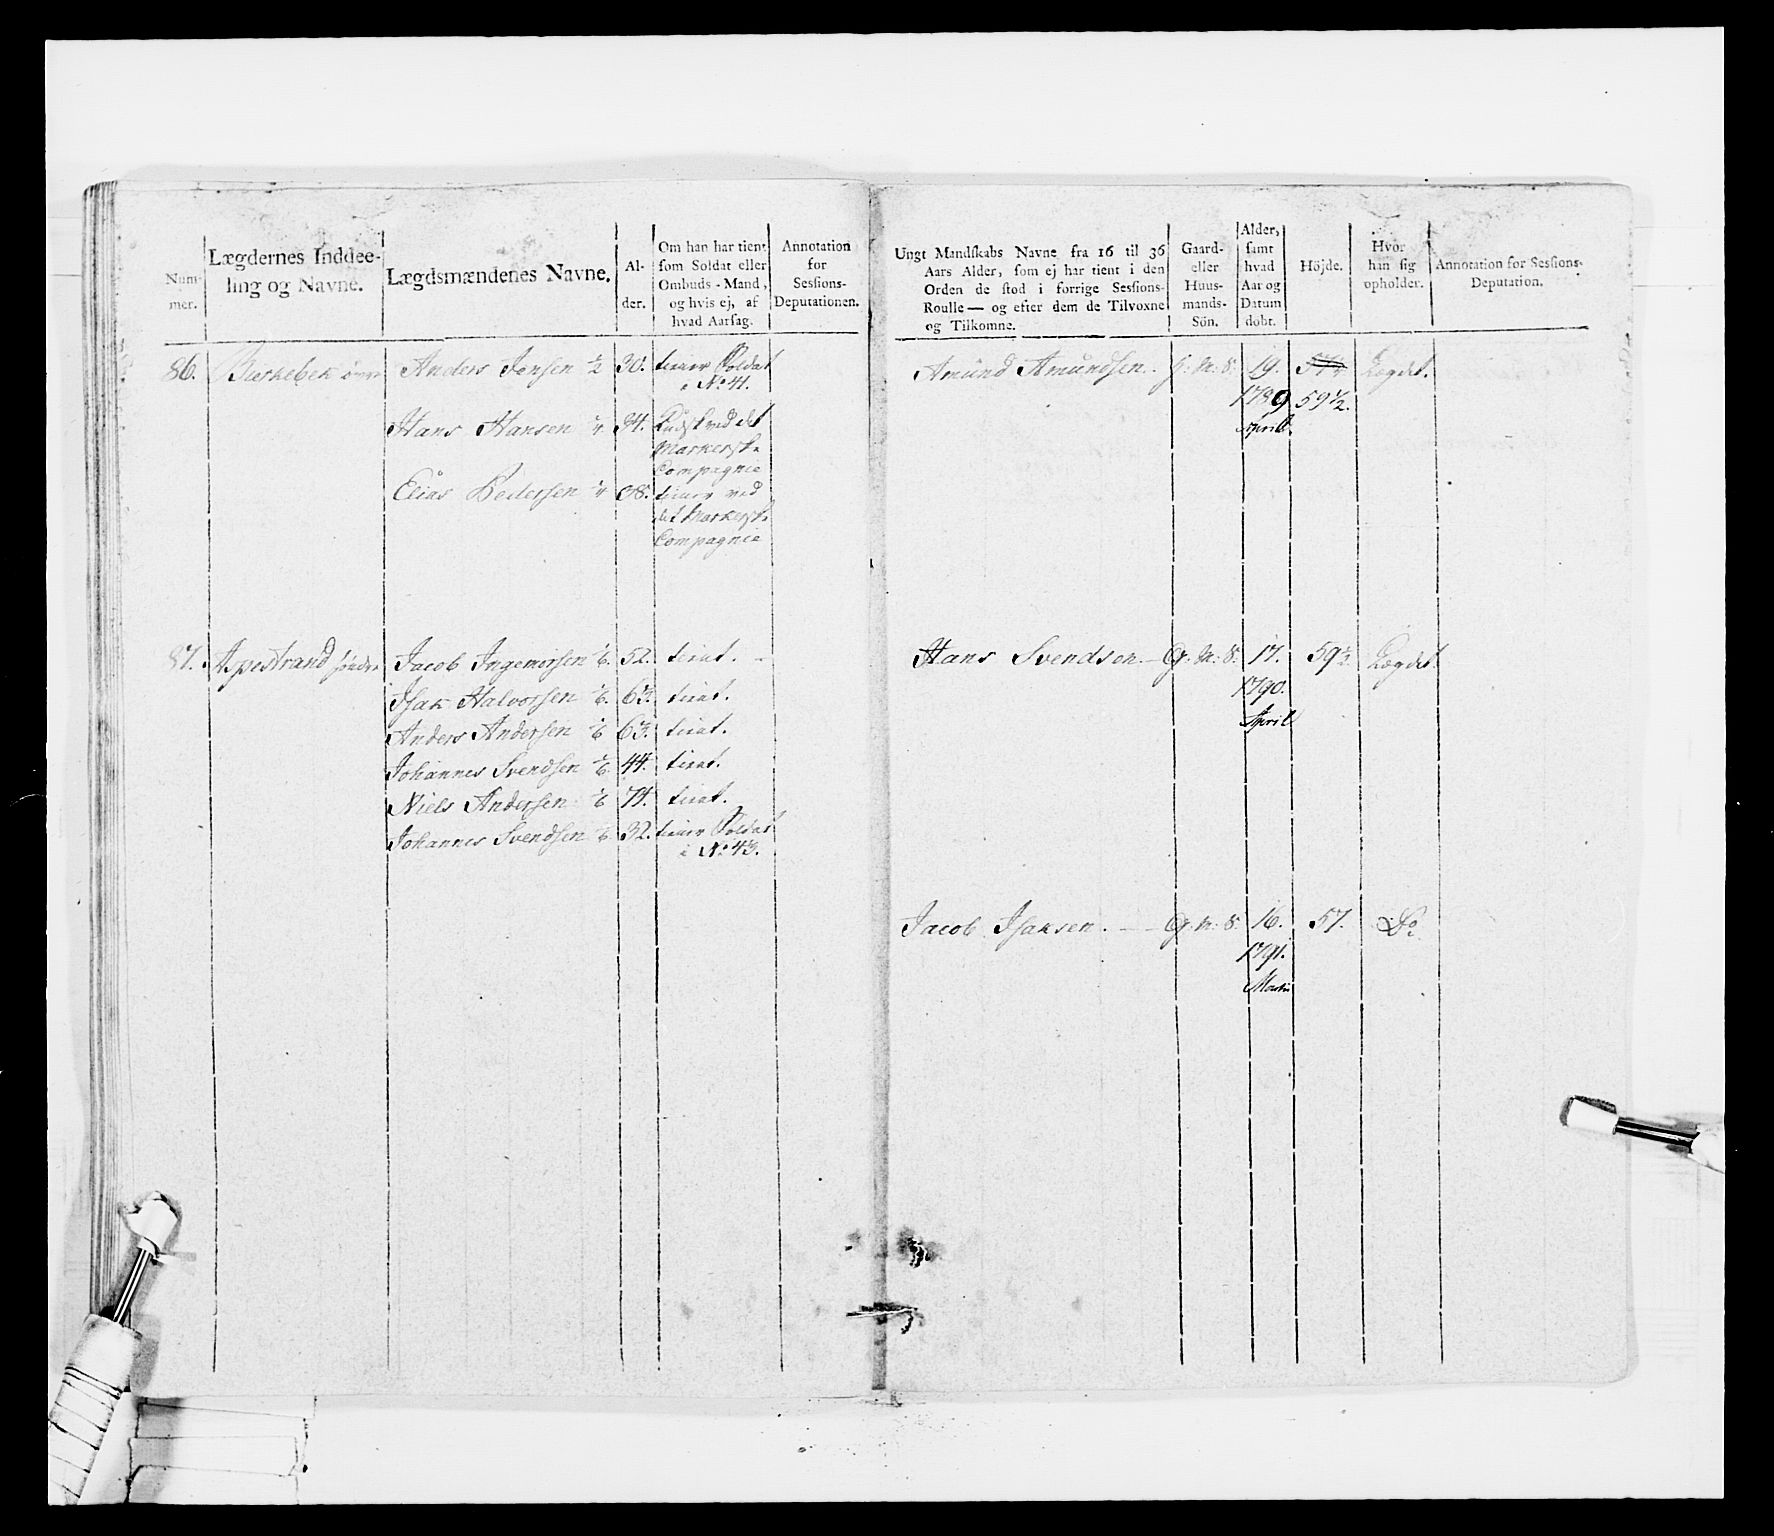 Num-
mer.
Lægdernes Inddee-
ling og Navne.
Lægdsmændenes Navne.
Al-
der.
Om han har tient
som Soldat eller
Ombuds-Mand,
og hvis ej, af
hvad Aarsag.
Annotation
for
Sessions-
Deputationen.
86. Bierkebek
Anders Jensen ½ 30. tiener Soldat
i No 41.
Hans Hansen ¼ 34. Kudsk ved det
Markersk.
Compagnie
Elias Pedersen ¼ 38. tiener ved
det Markersk.
Compagnie
87. Apestrand søndre
Jacob Ingemorsen ⅙. 52. tient.
Isak Halvorsen ⅙. 63. tient.
Anders Andersen ⅙ 63. tient.
Johannes Svendsen ⅙. 44. tient.
Niels Andersen ⅙ 74. tient.
Johannes Svendsen ⅙. 32. tiener Soldat
i No 43.
Ungt Mandskabs Navne fra 16 til 36
Aars Alder, som ej har tient i den
Orden de stod i forrige Sessions-
Roulle — og efter dem de Tilvoxne
og Tilkomne.
Gaard-
eller
Huus-
mands-
Sön.
Alder,
samt
hvad
Aar og
Datum
döbt.
Höjde.
Hvor
han sig
opholder.
Annotation for Sessions-
Deputation.
Amund Amundsen. G: M: S: 19. Lægdet.
1789 59½.
April.
Hans Svendsen. — G: M: S: 17. 59½ Lægdet.
1790.
April
Jacob Isaksen. — G: M: S: 16. 57. Do
1791.
Martii